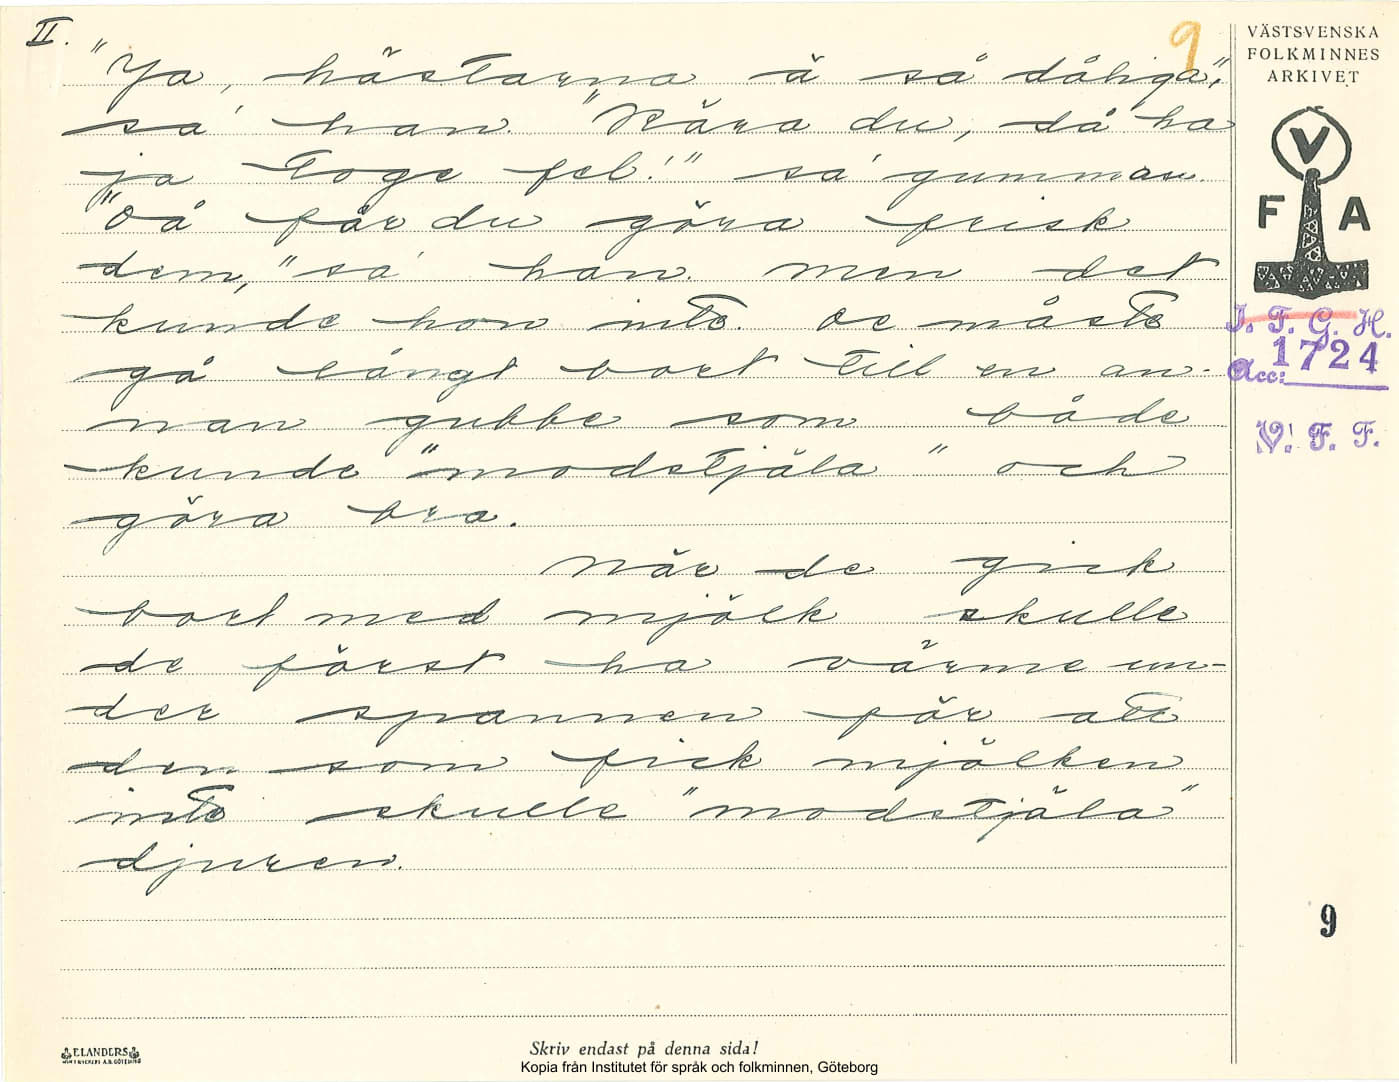 II.
9
"Ja, hästarna ä så dåliga",
sa' han. "Kära du, då ha
ja toge fel!" sa' gumman.
"Då får du göra frisk
dem," sa' han. Men det
kunde hon inte. De måste
gå långt bort till en an-
nan gubbe som både
kunde "modstjäla" och
göra bra.
När de gick
bort med mjölk skulle
de först ha värme un-
der spannen för att
den som fick mjölken
inte skulle "modstjäla"
djuren.
VÄSTSVENSKA
FOLKMINNES
ARKIVET
V
F A
I. F. G. H.
Acc: 1724
V. F. F.
9
E.LANDERS
Skriv endast på denna sida!
Kopia från Institutet för språk och folkminnen, Göteborg